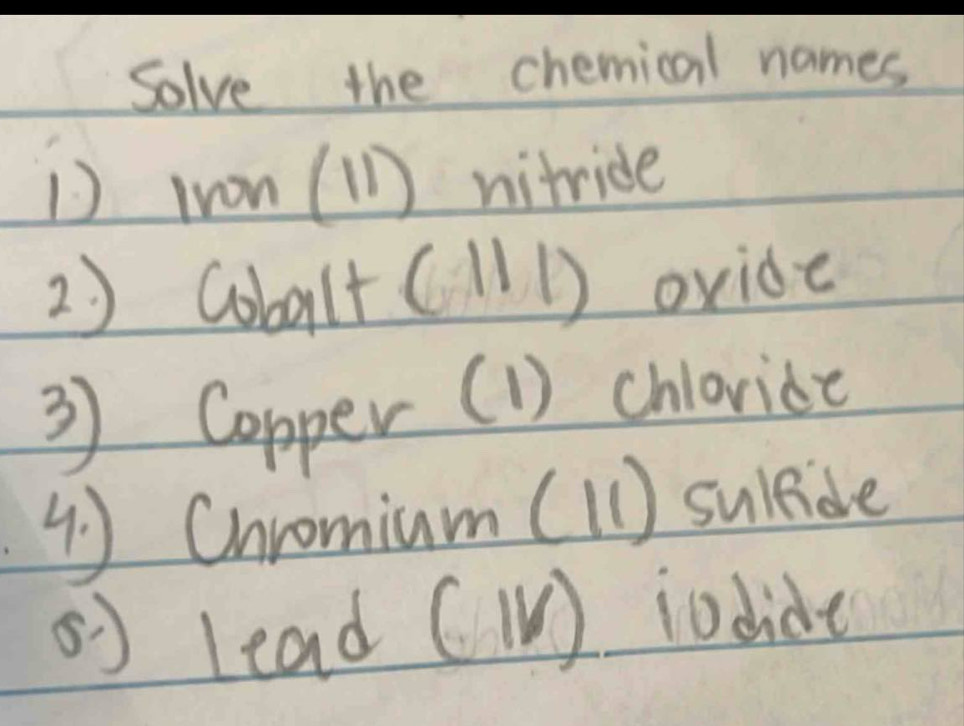 Solve the chemical names
1) Iron (II) nitride
2.) Cobalt (III) oxide
3) Copper (I) chloride
4.) Chromium (II) sulfide
5.) lead (IV) iodide